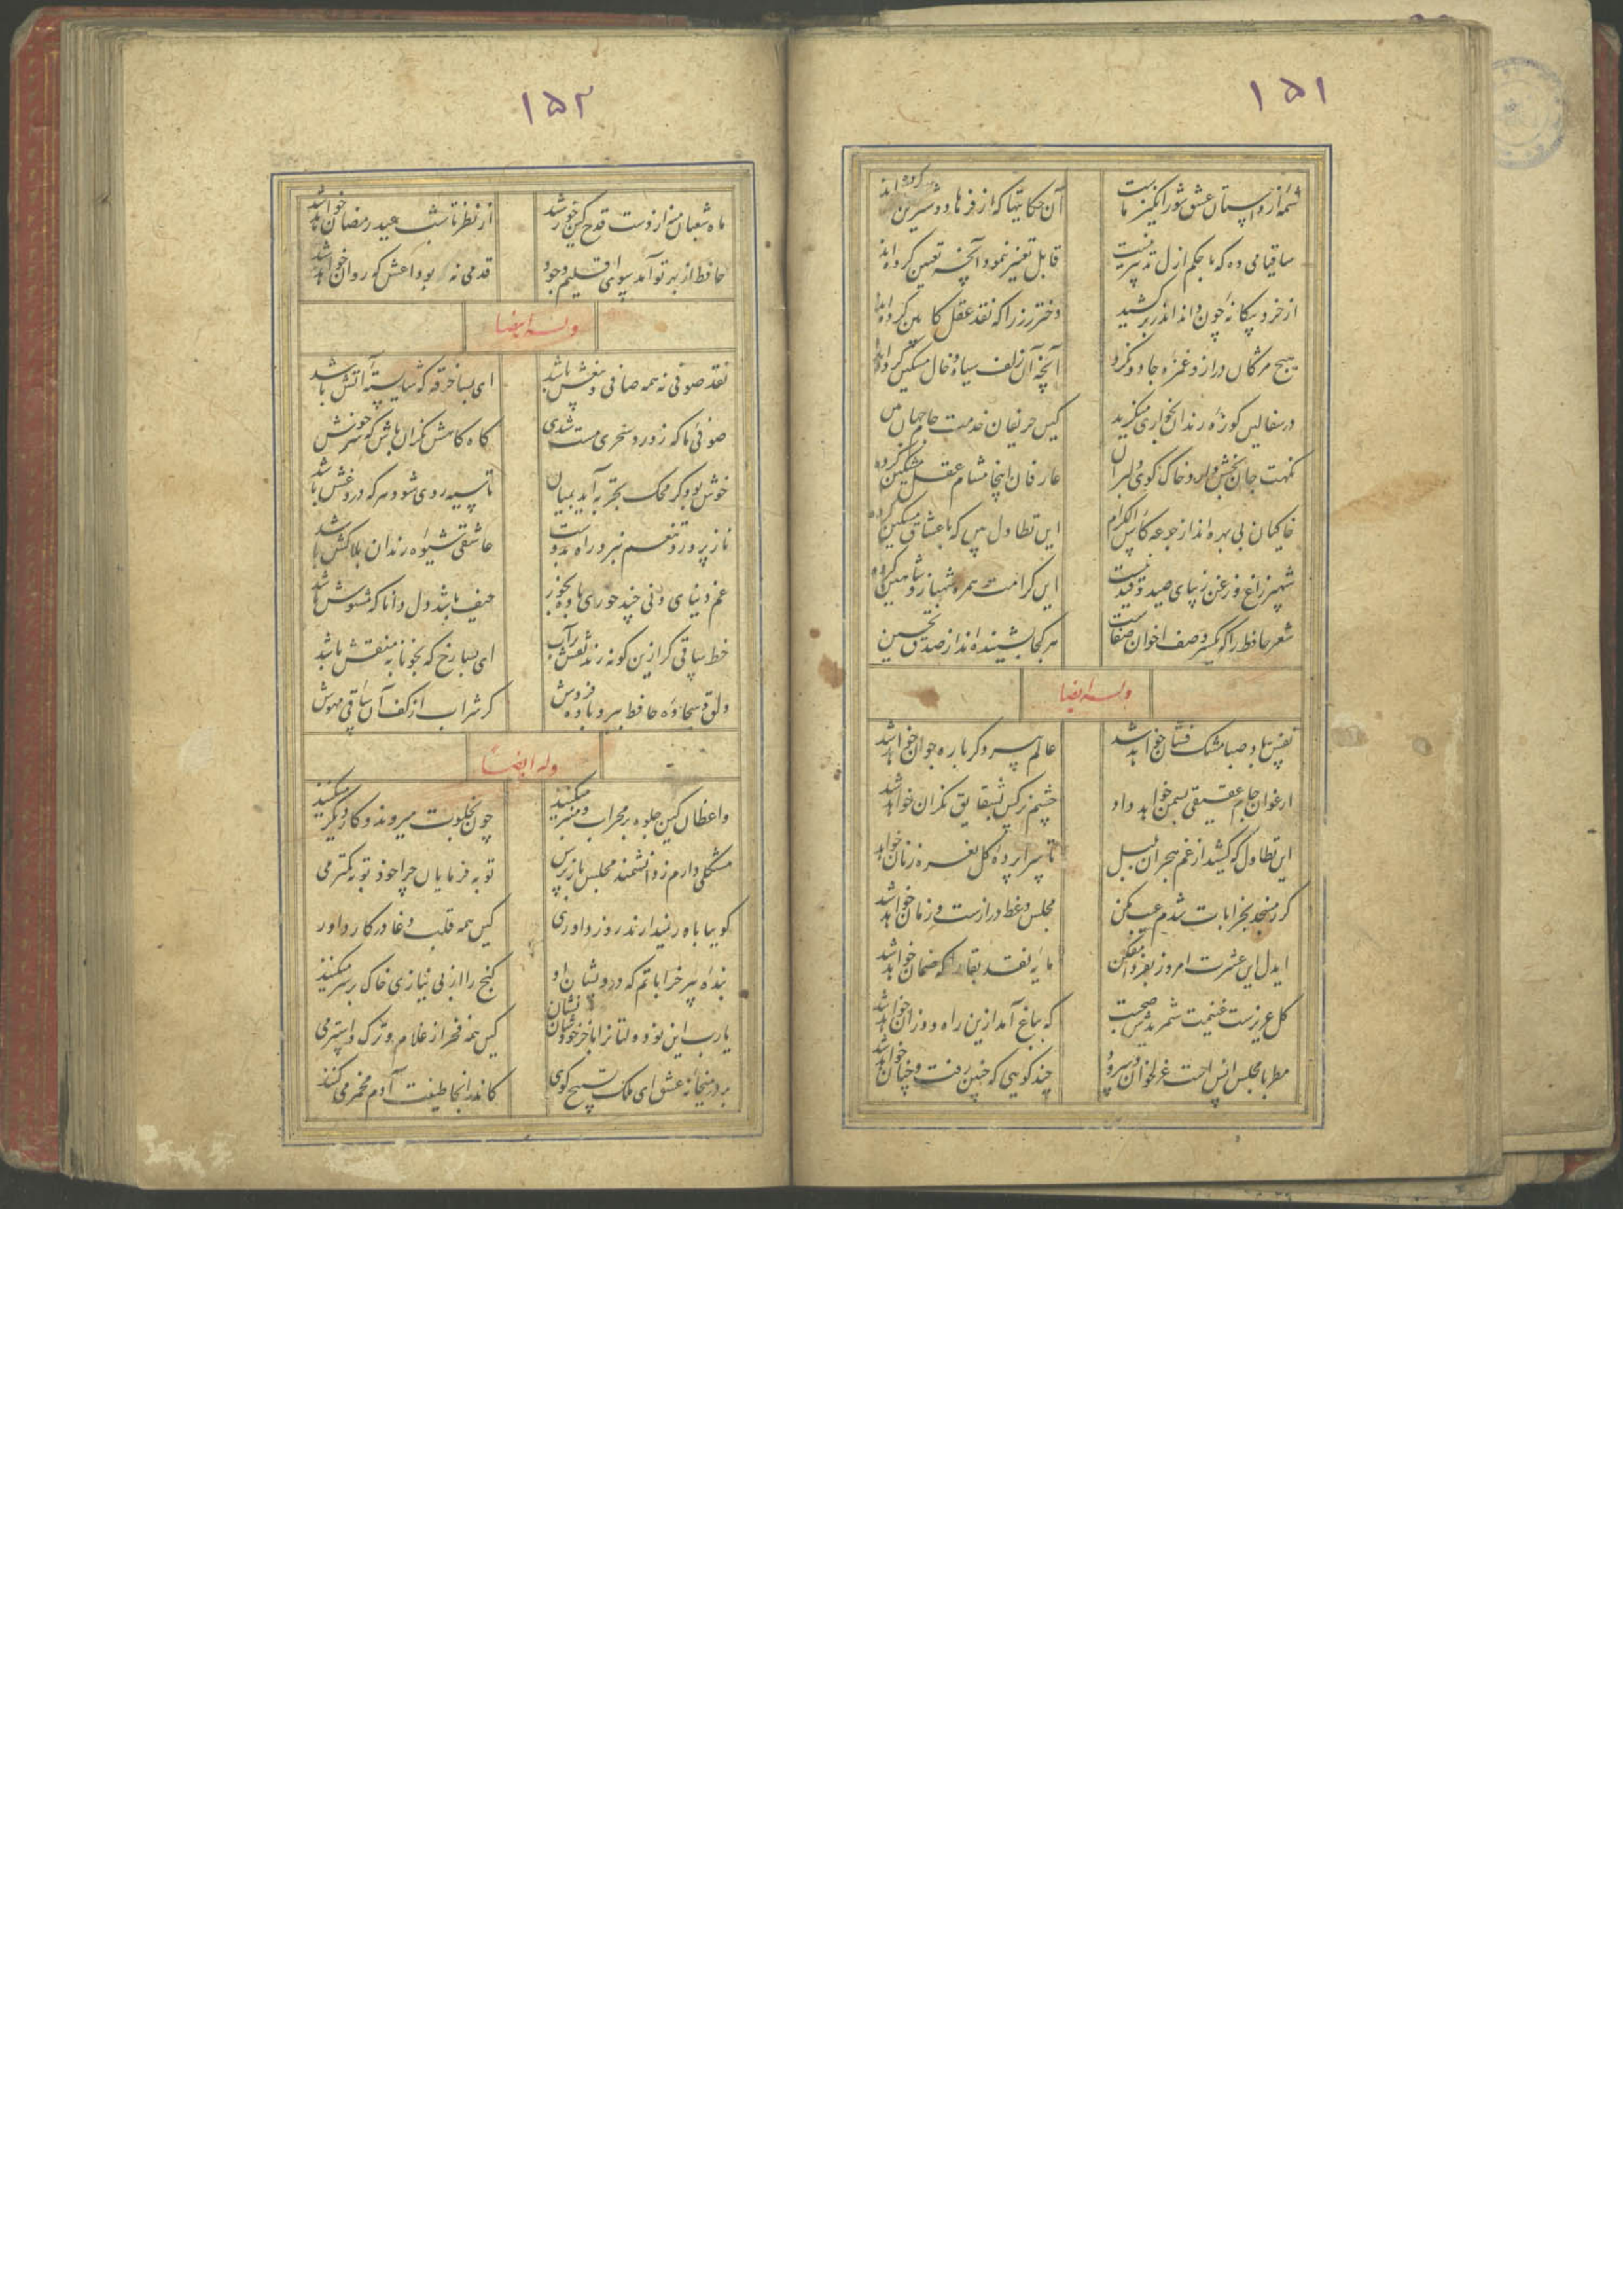 ۱۵۱
شمه از داستان عشق شورانگیز ماست
آن حکایتها که از فرهاد و شیرین کرده اند
ساقیا می ده که با حکم ازل تدبیر نیست
قابل تغییر نبود آنچه تعیین کرده اند
از خرد بیگانه چون داند اندر بر کشید
دختر رز را که نقد عقل کابین کرده اند
هیچ مژگان دراز و غمزه جادو نکرد
آنچه آن زلف سیاه و خال مشکین کرده اند
در سفالین کوزه رندان بخواری منگرید
کین حریفان خدمت جام جهان بین
نکهت جان بخش دارد خاک کوی دلبران
عارفان اینجا مشام عقل مشکین کرده
خاکیان بی بهره اند از جرعه کاس الکرام
این تطاول بین که با عشاق مسکین کرده
شهپر زاغ و زغن زیبای صید و قید نیست
این کرامت همره شهباز و شاهین کرده
شعر حافظ را که یکسر وصف اخوان صفاست
هر کجا بشنیده اند از صدق تحسین
وله ایضا
نفس باد صبا مشک فشان خواهد شد
عالم پیر دگر باره جوان خواهد شد
ارغوان جام عقیقی بسمن خواهد داد
چشم نرگس بشقایق نگران خواهد شد
این تطاول که کشید از غم هجران بلبل
تا سراپرده گل نعره زنان خواهد
گر ز مسجد بخرابات شدم عیب مکن
مجلس وعظ درازست و زمان خواهد شد
ایدل این عشرت امروز بفردا مفکن
مایه نقد بقا را که ضمان خواهد شد
گل عزیزست غنیمت شمریدش صحبت
که بباغ آمد ازین راه و از آن خواهد شد
مطربا مجلس انس است غزل خوان و سرود
چند گویی که چنین رفت و چنان خواهد شد
۱۵۲
ماه شعبان منه از دست قدح کین خورشید
از نظر تا شب عید رمضان خواهد شد
حافظ از بهر تو آمد سوی اقلیم وجود
قدمی نه بوداعش که روان خواهد شد
وله ایضا
نقد صوفی نه همه صافی و بیغش باشد
ای بسا خرقه که شایسته آتش باشد
صوفی ما که ز ورد سحری مست شدی
گاه کامش نگران باش که سرخوش
خوش بود گر محک تجربه آید بمیان
تا سیه روی شود هر که دروغش باشد
ناز پرورد تنعم نبرد راه بدوست
عاشقی شیوه رندان بلاکش باشد
غم دنیای دنی چند خوری باده بخور
حیف باشد دل دانا که مشوش باشد
خط ساقی گر ازین گونه زند نقش بر آب
ای بسا رخ که بخونابه منقش باشد
دلق و سجاده حافظ ببرد باده فروش
گر شراب از کف آن ساقی مهوش
وله ایضا
واعظان کین جلوه بر محراب و منبر میکنند
چون بخلوت میروند و کار دیگر میکنند
مشکلی دارم ز دانشمند مجلس باز پرس
توبه فرمایان چرا خود توبه کمتر می
گوییا باور نمیدارند روز داوری
کین همه قلب و دغا در کار داور
بنده پیر خراباتم که درویشان او
گنج را از بی نیازی خاک بر سر میکنند
یارب این نو دولتانرا با خر خودشان نشان
کین همه فخر از غلام و ترک و استر می
بر در میخانه عشق ای ملک تسبیح گوی
کاندر آنجا طینت آدم مخمر می کنند